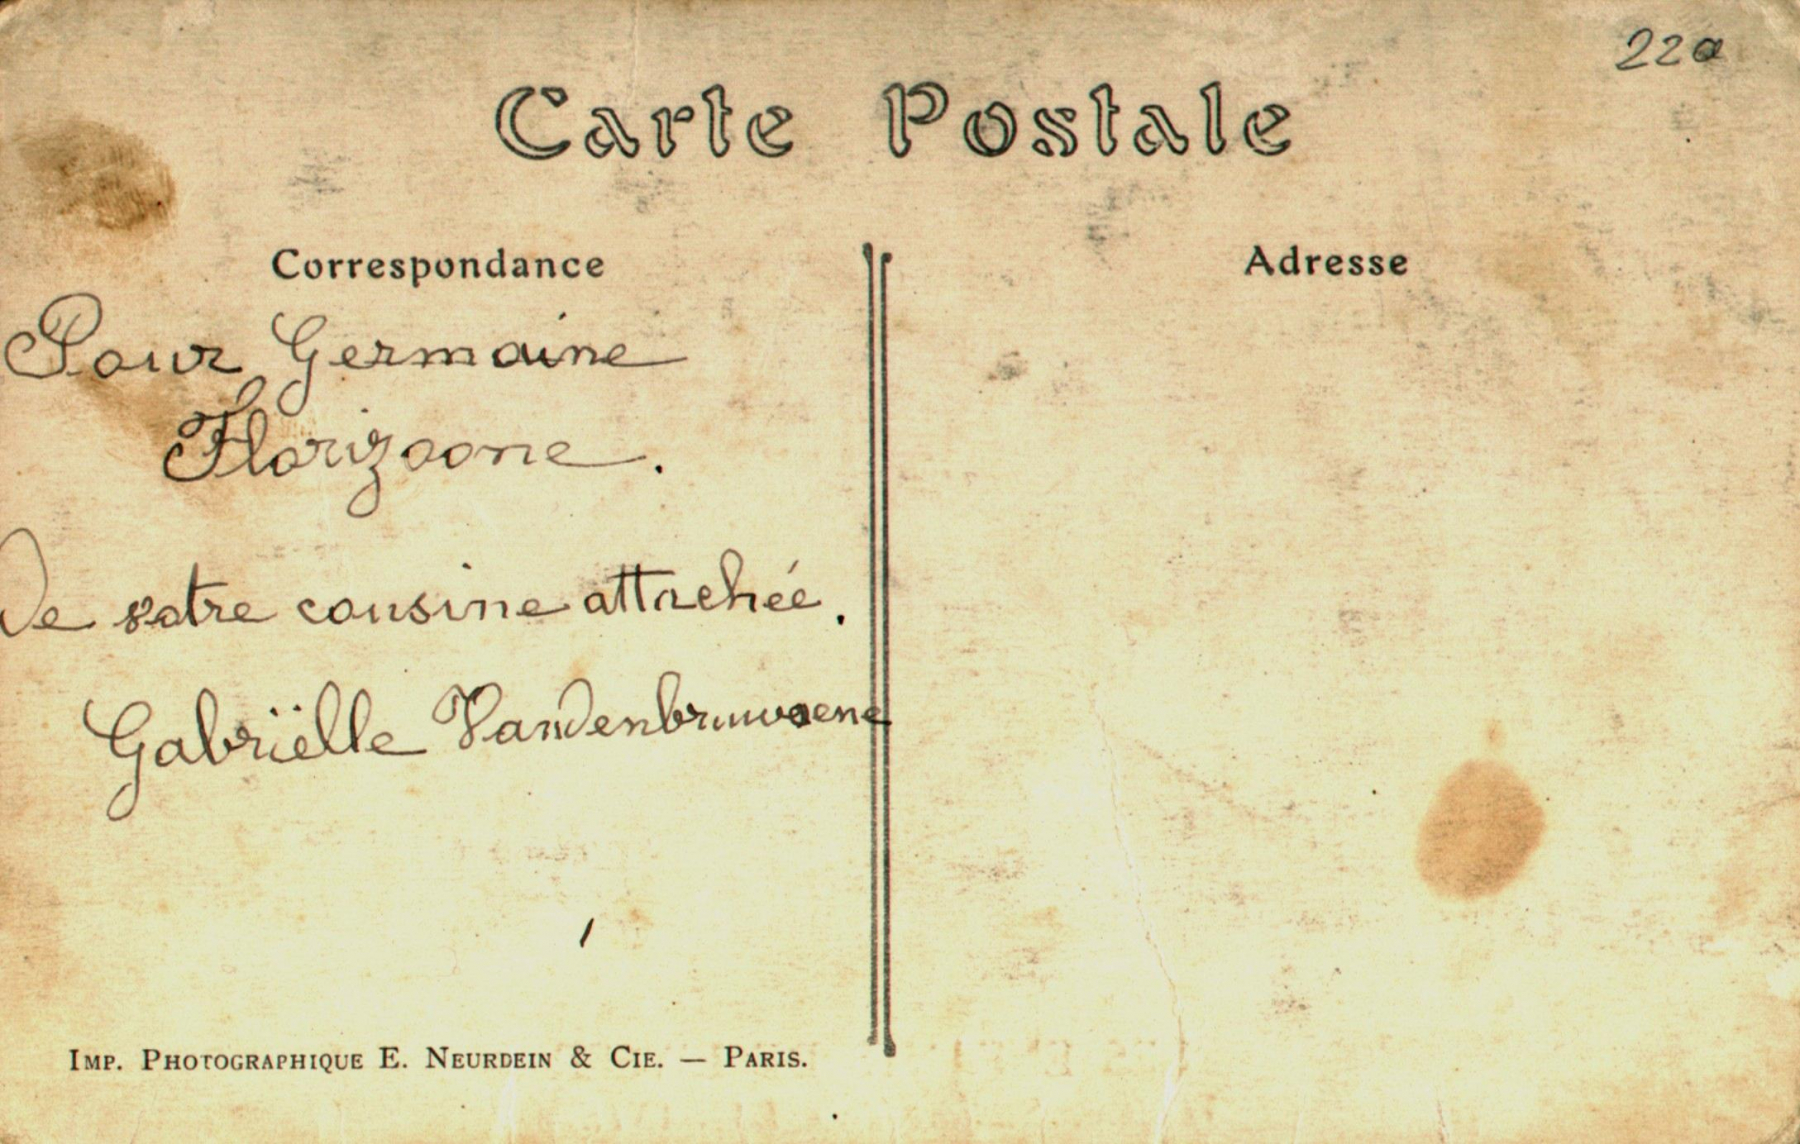 22a
Carte Postale
Correspondance
Adresse
Pour Germaine
Florizoone.
De votre cousine attachée.
Gabriëlle Vandenbruwaene
IMP. PHOTOGRAPHIQUE E. NEURDEIN & CIE. — PARIS.